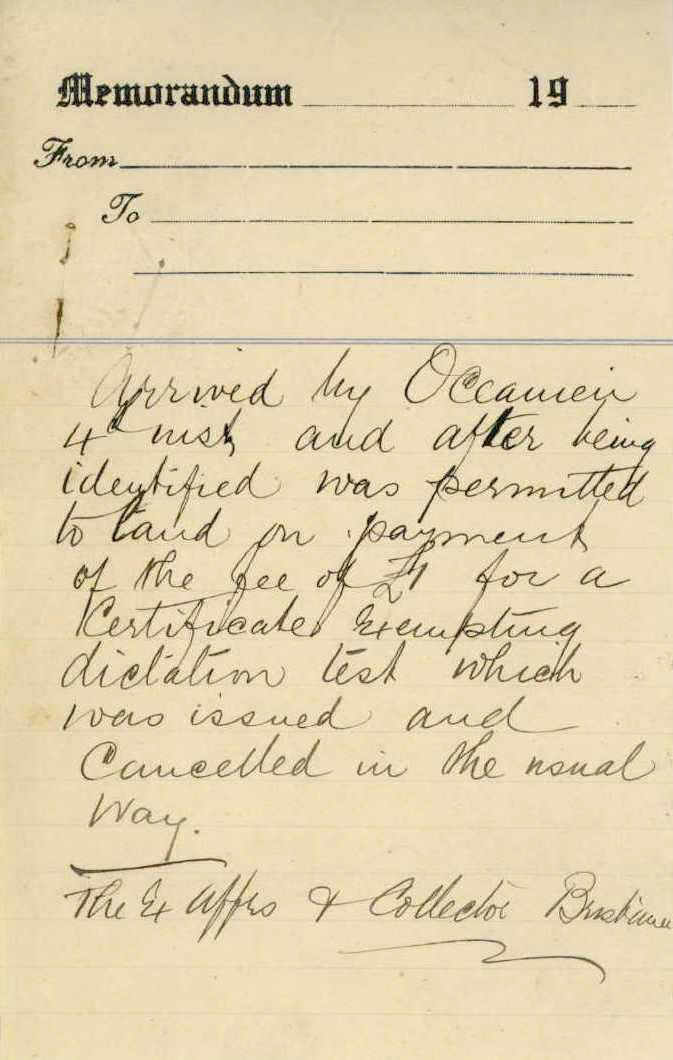 Memorandum 19
From
To
Arrived by Oceanien
4th inst and after being
identified was permitted
to land on payment
of the fee of £1 for a
Certificate Exempting
dictation test which
was issued and
Cancelled in the usual
way.
The Ex Affrs & Collector Brisbane